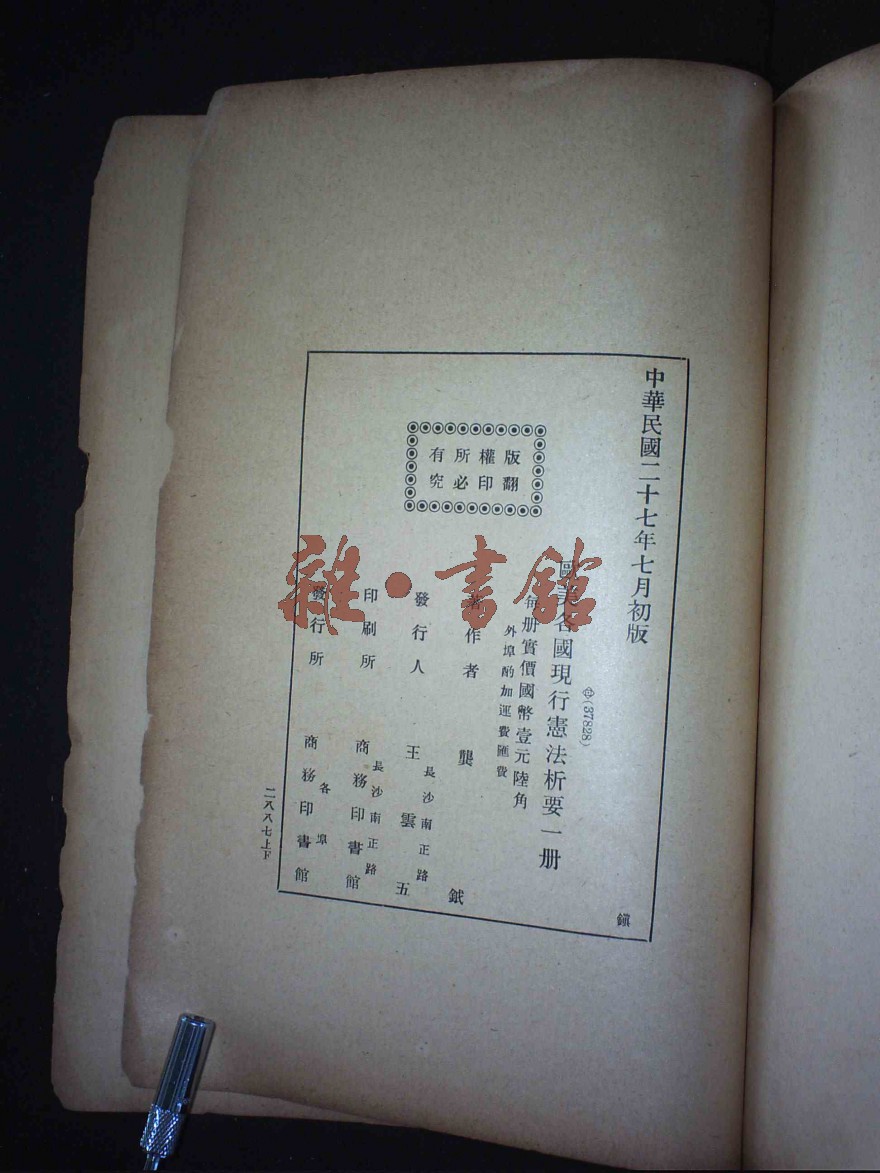 中華民國二十七年七月初版
㊥(37828)
歐美各國現行憲法析要一册
每册實價國幣壹元陸角
外埠酌加運費匯費
版權所有
翻印必究
著作者 龔鉞
長沙南正路
發行人 王雲五
長沙南正路
印刷所 商務印書館
各埠
發行所 商務印書館
二八八七上下
鎭
雜·書館